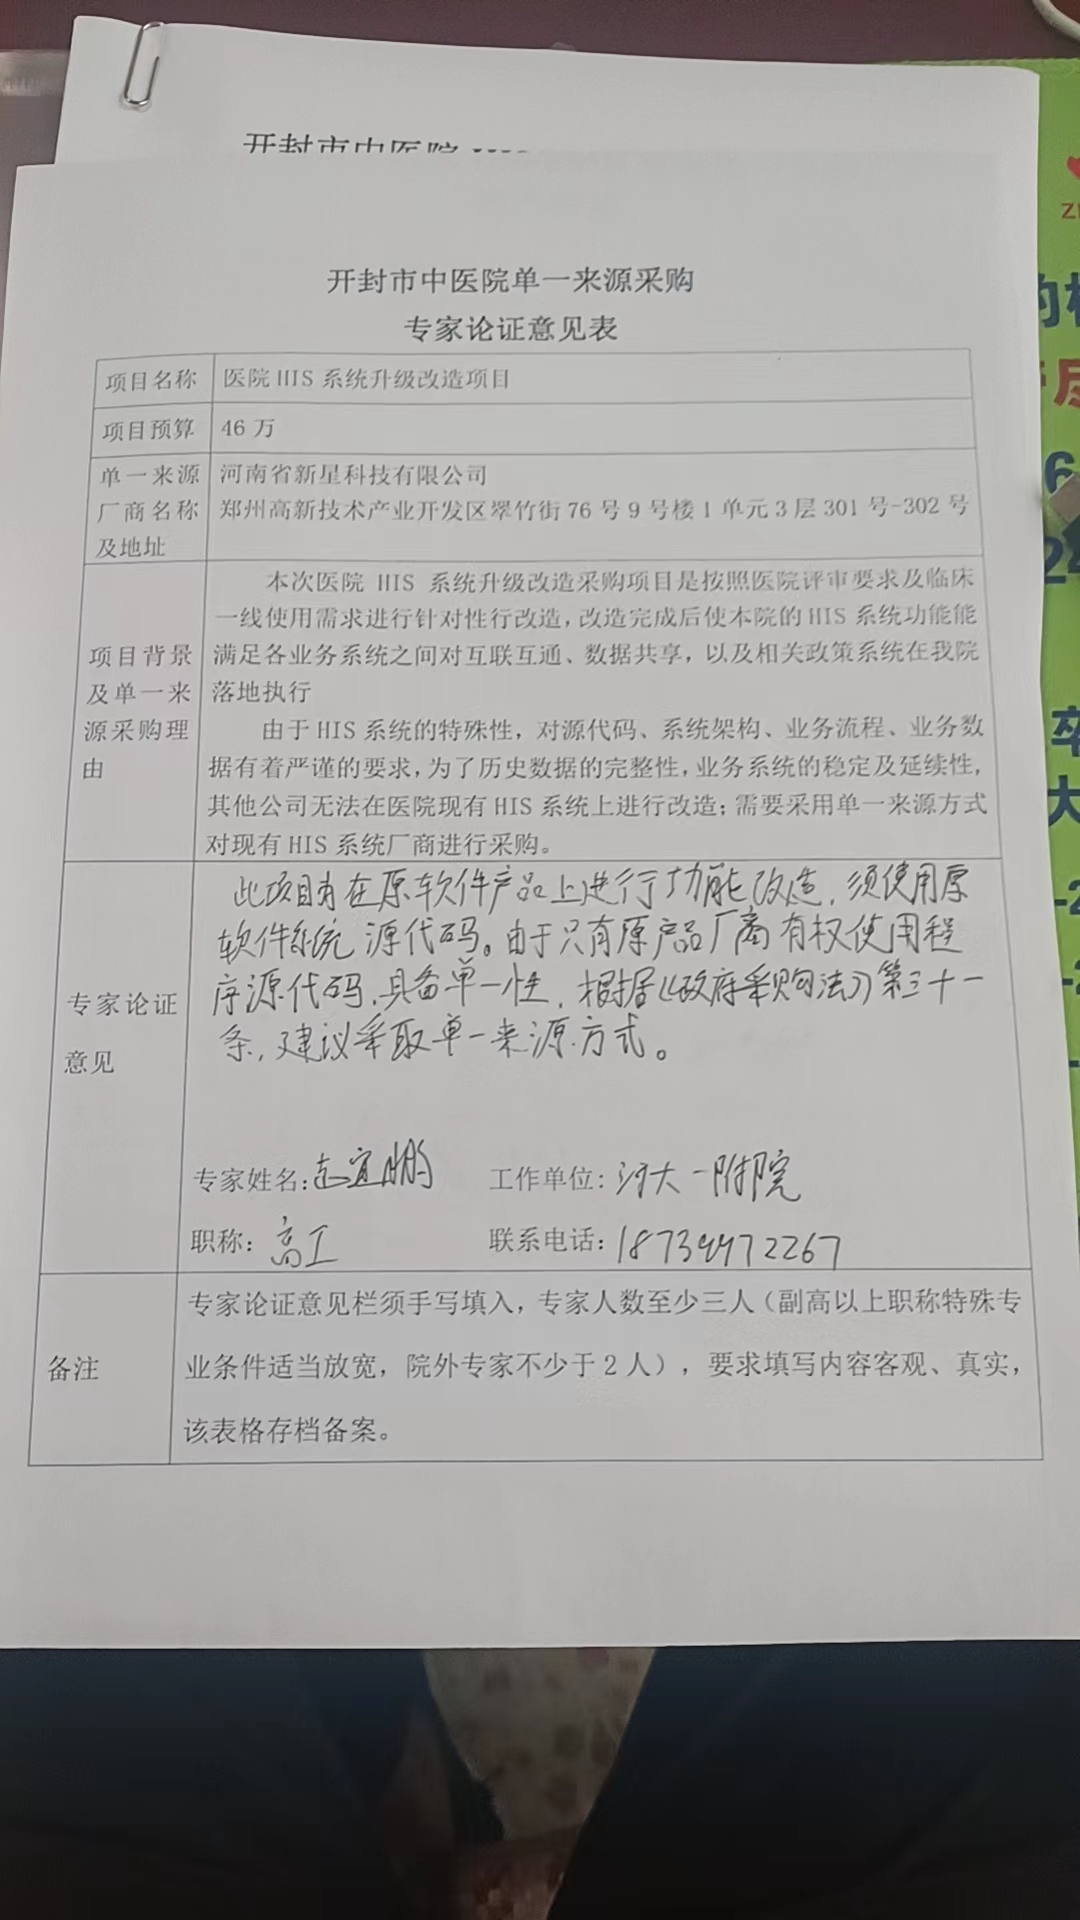 开封市中医院 HIS
开封市中医院单一来源采购
专家论证意见表
项目名称
医院 HIS 系统升级改造项目
项目预算
46 万
单一来源
厂商名称
及地址
河南省新星科技有限公司
郑州高新技术产业开发区翠竹街 76 号 9 号楼 1 单元 3 层 301 号-302 号
项目背景
及单一来
源采购理
由
本次医院 HIS 系统升级改造采购项目是按照医院评审要求及临床
一线使用需求进行针对性行改造，改造完成后使本院的 HIS 系统功能能
满足各业务系统之间对互联互通、数据共享，以及相关政策系统在我院
落地执行
由于 HIS 系统的特殊性，对源代码、系统架构、业务流程、业务数
据有着严谨的要求，为了历史数据的完整性，业务系统的稳定及延续性，
其他公司无法在医院现有 HIS 系统上进行改造；需要采用单一来源方式
对现有 HIS 系统厂商进行采购。
专家论证
意见
此项目在原软件产品上进行功能改造，须使用原
软件系统源代码。由于只有原产品厂商有权使用程
序源代码，具备单一性，根据《政府采购法》第三十一
条，建议采取单一来源方式。
专家姓名：宜鹏 工作单位：河大一附院
职称：高工 联系电话：18739972267
备注
专家论证意见栏须手写填入，专家人数至少三人（副高以上职称特殊专
业条件适当放宽，院外专家不少于 2 人），要求填写内容客观、真实，
该表格存档备案。